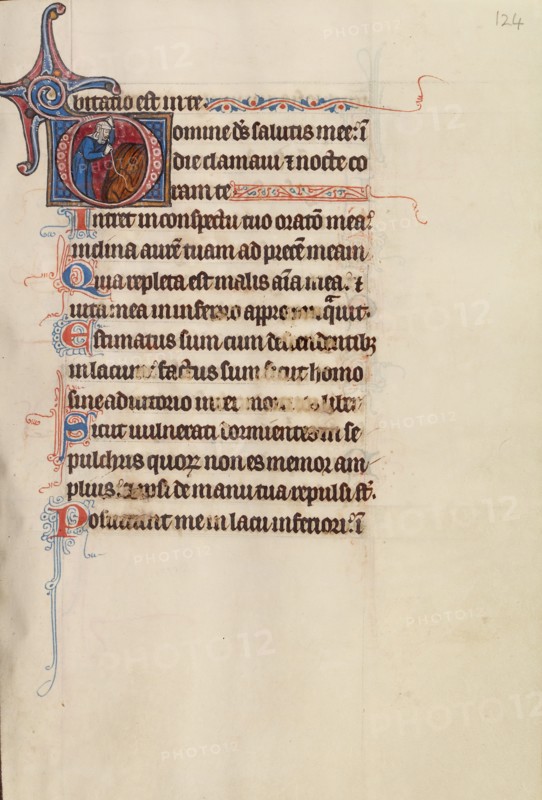 124
bitatio est in te
Domine ds salutis mee: ī
die clamaui ⁊ nocte co
ram te
Intret in conspectu tuo oratō mea:
inclina aurē tuam ad precē meam
Quia repleta est malis aīa mea: ⁊
uita mea in inferno
Estimatus sum cum
in lacum: factus sum sicut homo
sine adiutorio inter
Sicut uulnerati dormientes in se
pulchris quoꝝ non es memor am
plius: ⁊ ipsi de manu tua repulsi st̄.
Posuerunt me in lacu inferiori: ī
PHOTO12